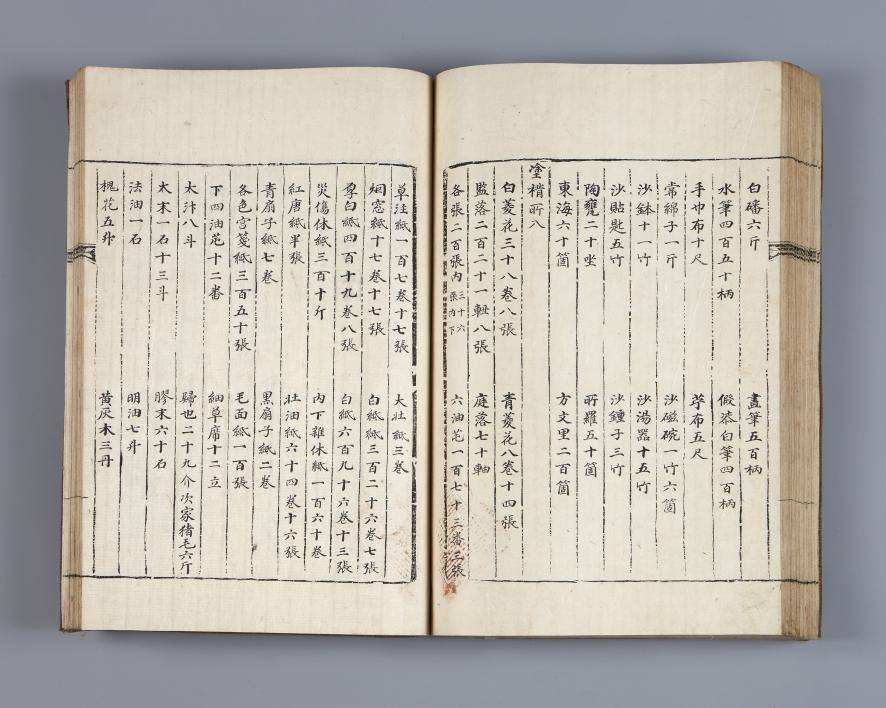 白磻六斤 畫筆五百柄
水筆四百五十柄 假漆白筆四百柄
手巾布十尺 苧布五尺
常綿子一斤 沙磁碗一竹六箇
沙鉢十一竹 沙湯器十五竹
沙貼匙五竹 沙鍾子三竹
陶甕二十坐 所羅五十箇
東海六十箇 方文里二百箇
塗褙所八
白菱花三十八卷八張 青菱花八卷十四張
監落二百二十一軸八張 庭落七十軸
各張二百張內三十六張內下 六油芚一百七十三番三張
草注紙一百七卷十七張 大壯紙三卷
烟窓紙十七卷十七張 白紙紙三百二十六卷七張
厚白紙四百十九卷八張 白紙六百九十六卷十三張
災傷休紙三百十斤 內下雜休紙一百六十卷
紅唐紙半張 壯油紙六十四卷十六張
青扇子紙七卷 黑扇子紙二卷
各色宮箋紙三百五十張 毛面紙一百張
下四油芚十二番 細草席十二立
太汁八斗 歸也二十九介次家猪毛六斤
太末一石十三斗 膠末六十石
法油一石 明油七升
槐花五升 黃灰木三丹